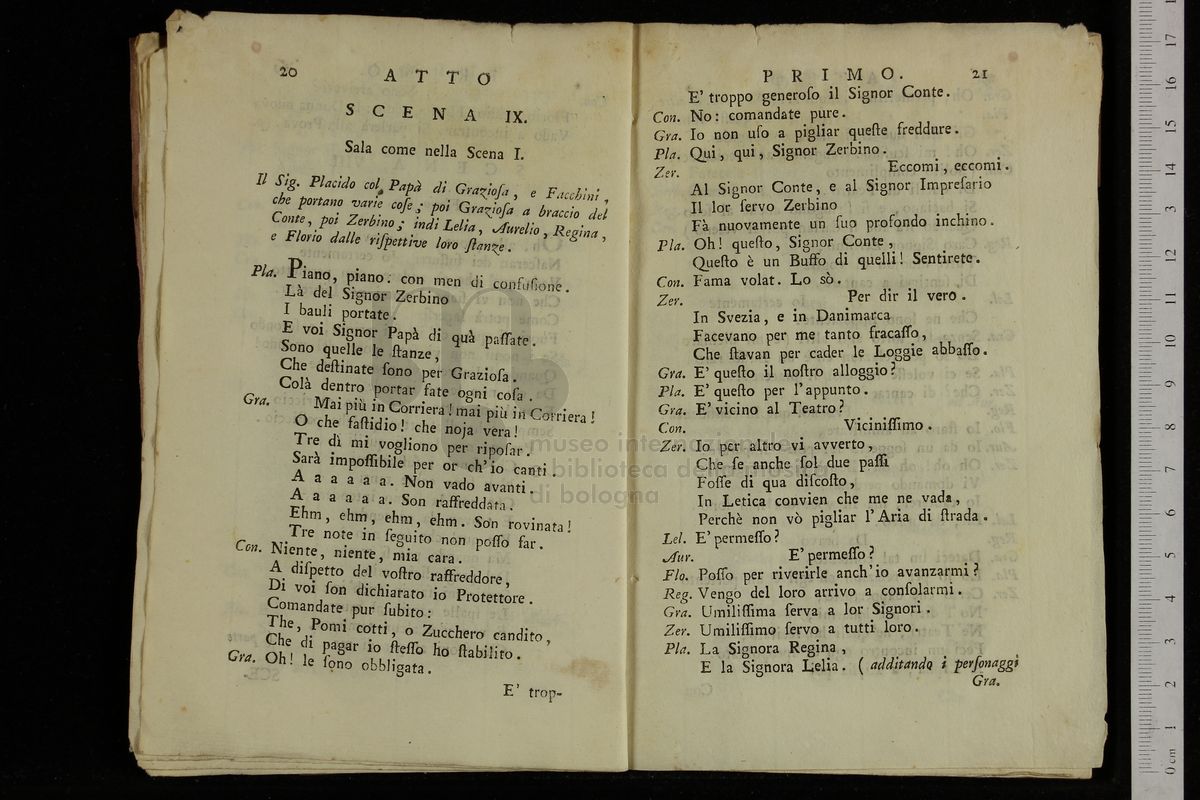 20 ATTO
SCENA IX.
Sala come nella Scena I.
Il Sig. Placido col Papà di Grazioſa, e Facchini,
che portano varie coſe; poi Grazioſa a braccio del
Conte, poi Zerbino; indi Lelia, Aurelio, Regina,
e Florio dalle riſpettive loro ſtanze.
Pla. Piano, piano: con men di confuſione.
Là del Signor Zerbino
I bauli portate.
E voi Signor Papà di quà paſſate.
Sono quelle le ſtanze,
Che deſtinate ſono per Grazioſa.
Colà dentro portar fate ogni coſa.
Gra. Mai più in Corriera! mai più in Corriera!
O che faſtidio! che noja vera!
Tre dì mi vogliono per ripoſar.
Sarà impoſſibile per or ch'io canti.
A a a a a a. Non vado avanti.
A a a a a a. Son raffreddata.
Ehm, ehm, ehm, ehm. Son rovinata!
Tre note in ſeguito non poſſo far.
Con. Niente, niente, mia cara.
A diſpetto del voſtro raffreddore,
Di voi ſon dichiarato io Protettore.
Comandate pur ſubito:
The, Pomi cotti, o Zucchero candito,
Che di pagar io ſteſſo ho ſtabilito.
Gra. Oh! le ſono obbligata.
E' trop-
PRIMO. 21
E' troppo generoſo il Signor Conte.
Con. No: comandate pure.
Gra. Io non uſo a pigliar queſte freddure.
Pla. Qui, qui, Signor Zerbino.
Zer. Eccomi, eccomi.
Al Signor Conte, e al Signor Impreſario
Il lor ſervo Zerbino
Fà nuovamente un ſuo profondo inchino.
Pla. Oh! queſto, Signor Conte,
Queſto è un Buffo di quelli! Sentirete.
Con. Fama volat. Lo sò.
Zer. Per dir il vero.
In Svezia, e in Danimarca
Facevano per me tanto fracaſſo,
Che ſtavan per cader le Loggie abbaſſo.
Gra. E' queſto il noſtro alloggio?
Pla. E' queſto per l'appunto.
Gra. E' vicino al Teatro?
Con. Viciniſſimo.
Zer. Io per altro vi avverto,
Che ſe anche ſol due paſſi
Foſſe di qua diſcoſto,
In Letica convien che me ne vada,
Perchè non vò pigliar l'Aria di ſtrada.
Lel. E' permeſſo?
Aur. E' permeſſo?
Flo. Poſſo per riverirle anch'io avanzarmi?
Reg. Vengo del loro arrivo a conſolarmi.
Gra. Umiliſſima ſerva a lor Signori.
Zer. Umiliſſimo ſervo a tutti loro.
Pla. La Signora Regina,
E la Signora Lelia. (additando i perſonaggi
Gra.
museo internazionale
biblioteca della musica
di bologna
0 cm 1 2 3 4 5 6 7 8 9 10 11 12 13 14 15 16 17